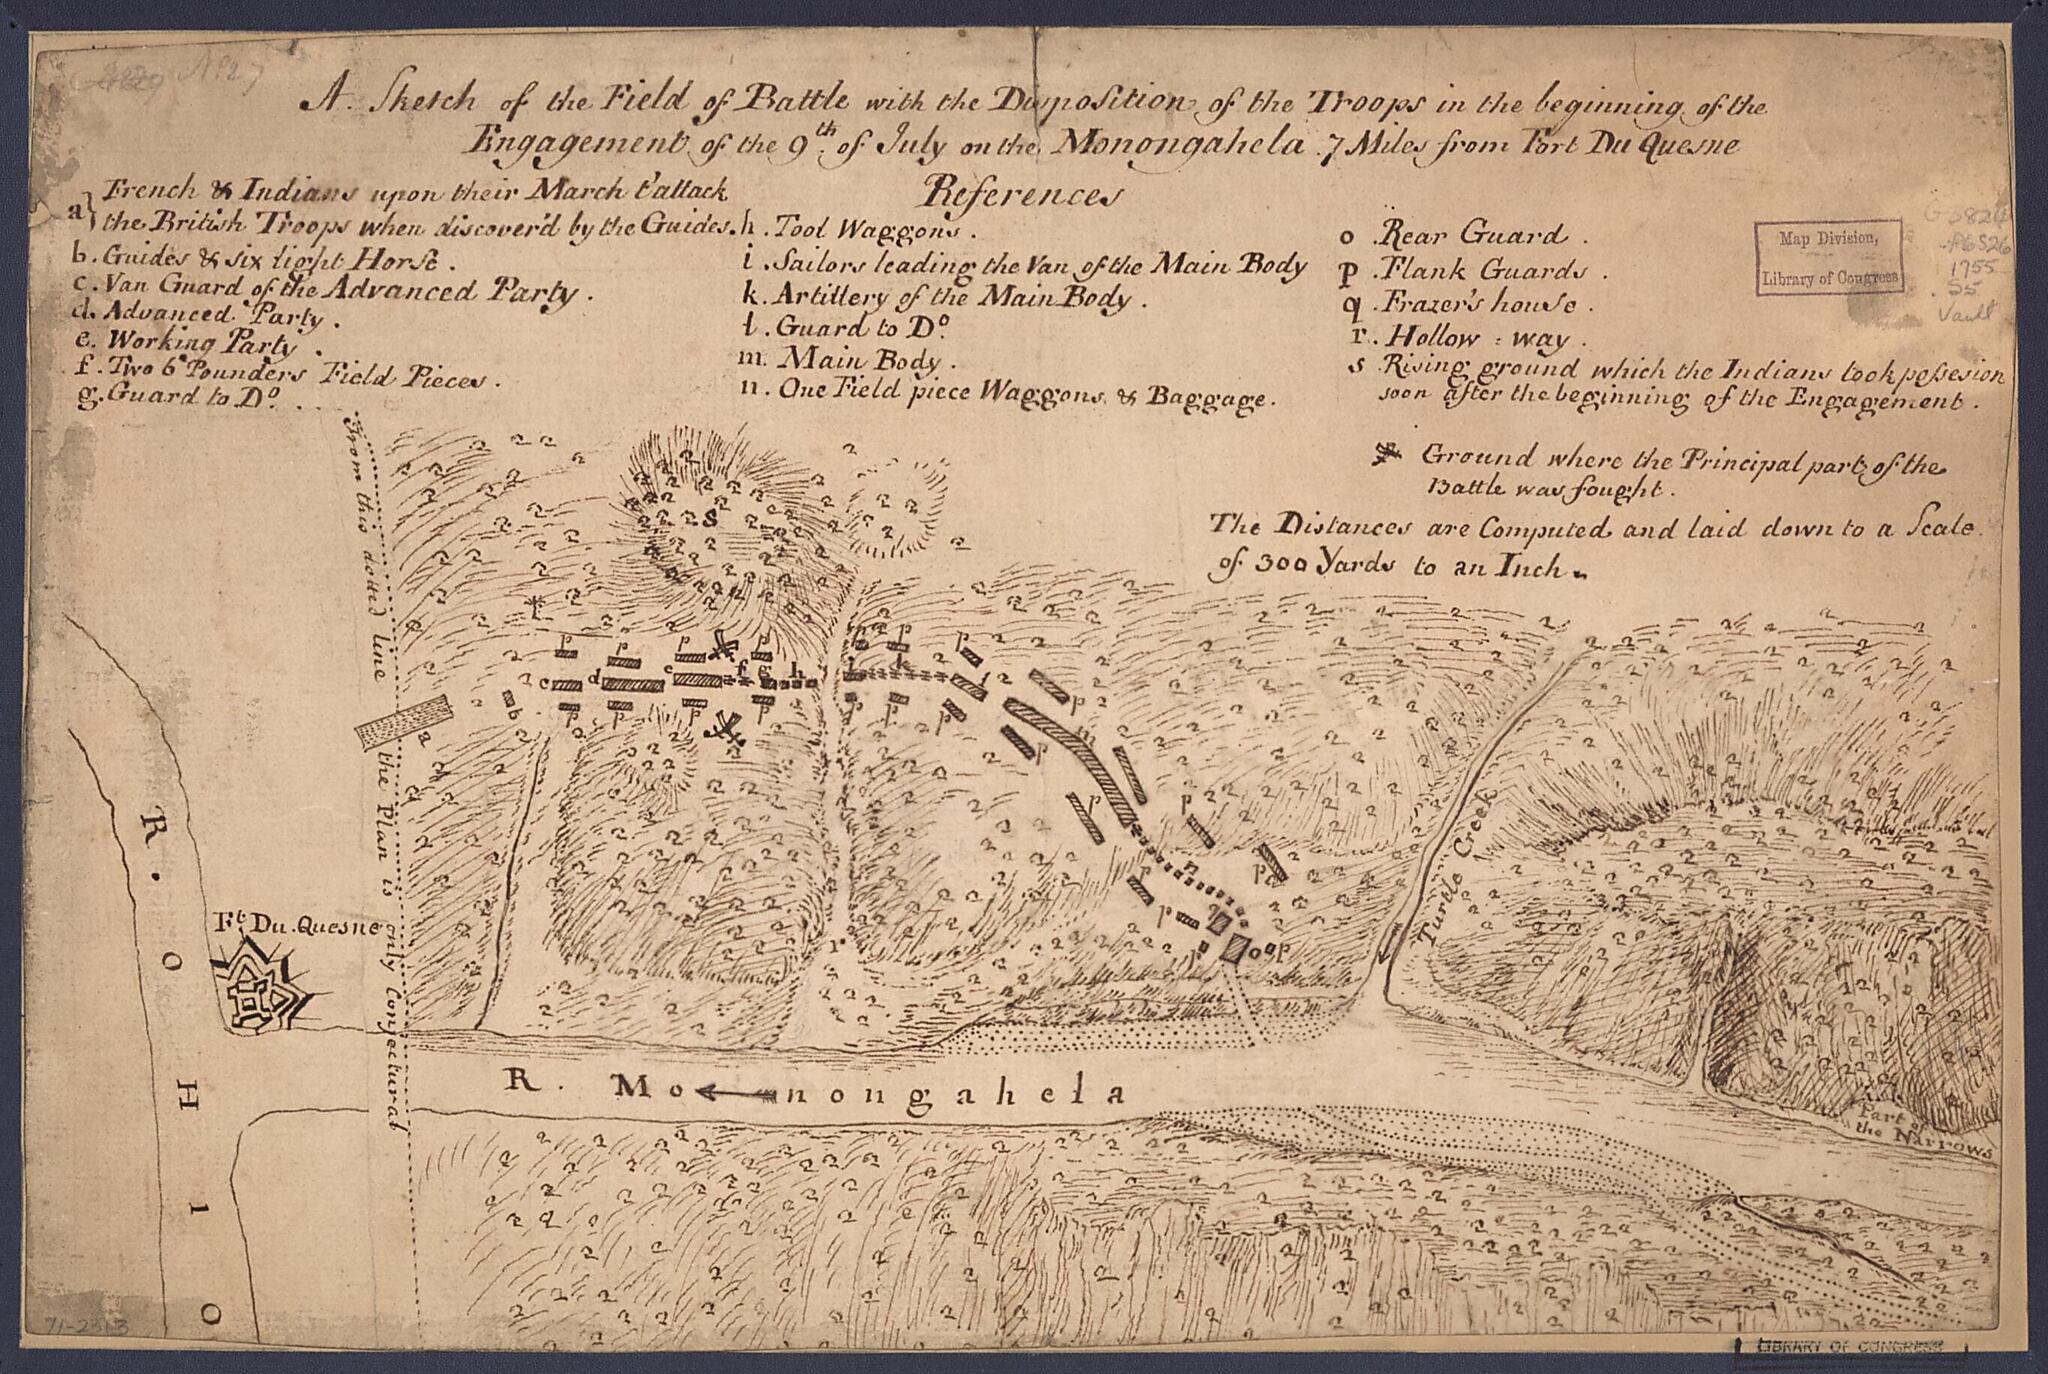 A Sketch of the Field of Battle with the Disposition of the Troops in the beginning of the
Engagement of the 9th of July on the Monongahela 7 Miles from Fort Du Quesne
References
a} French & Indians upon their March t'attack
the British Troops when discover'd by the Guides.
b. Guides & six light Horse.
c. Van Guard of the Advanced Party.
d. Advanced Party.
e. Working Party.
f. Two 6 Pounders Field Pieces.
g. Guard to Do.
h. Tool Waggons.
i. Sailors leading the Van of the Main Body
k. Artillery of the Main Body.
l. Guard to Do.
m. Main Body.
n. One Field piece Waggons & Baggage.
o. Rear Guard.
p. Flank Guards.
q. Frazer's house.
r. Hollow : way.
s. Rising ground which the Indians took possesion
soon after the beginning of the Engagement.
Ground where the Principal part of the
Battle was fought.
The Distances are Computed and laid down to a Scale
of 300 Yards to an Inch.
Map Division,
Library of Congress
1755
.S5
Vault
From this dotted line the Plan is only Conjectural
s
p p p p p p p
c d e f g h i k l
p p p p p p p
b
a
p
m
p
p
p
n
p
p
p
q
o
p
r
Turtle Creek
Ft. Du Quesne
R. OHIO
R. Monongahela
Part of
the Narrows
71-2313
LIBRARY OF CONGRESS